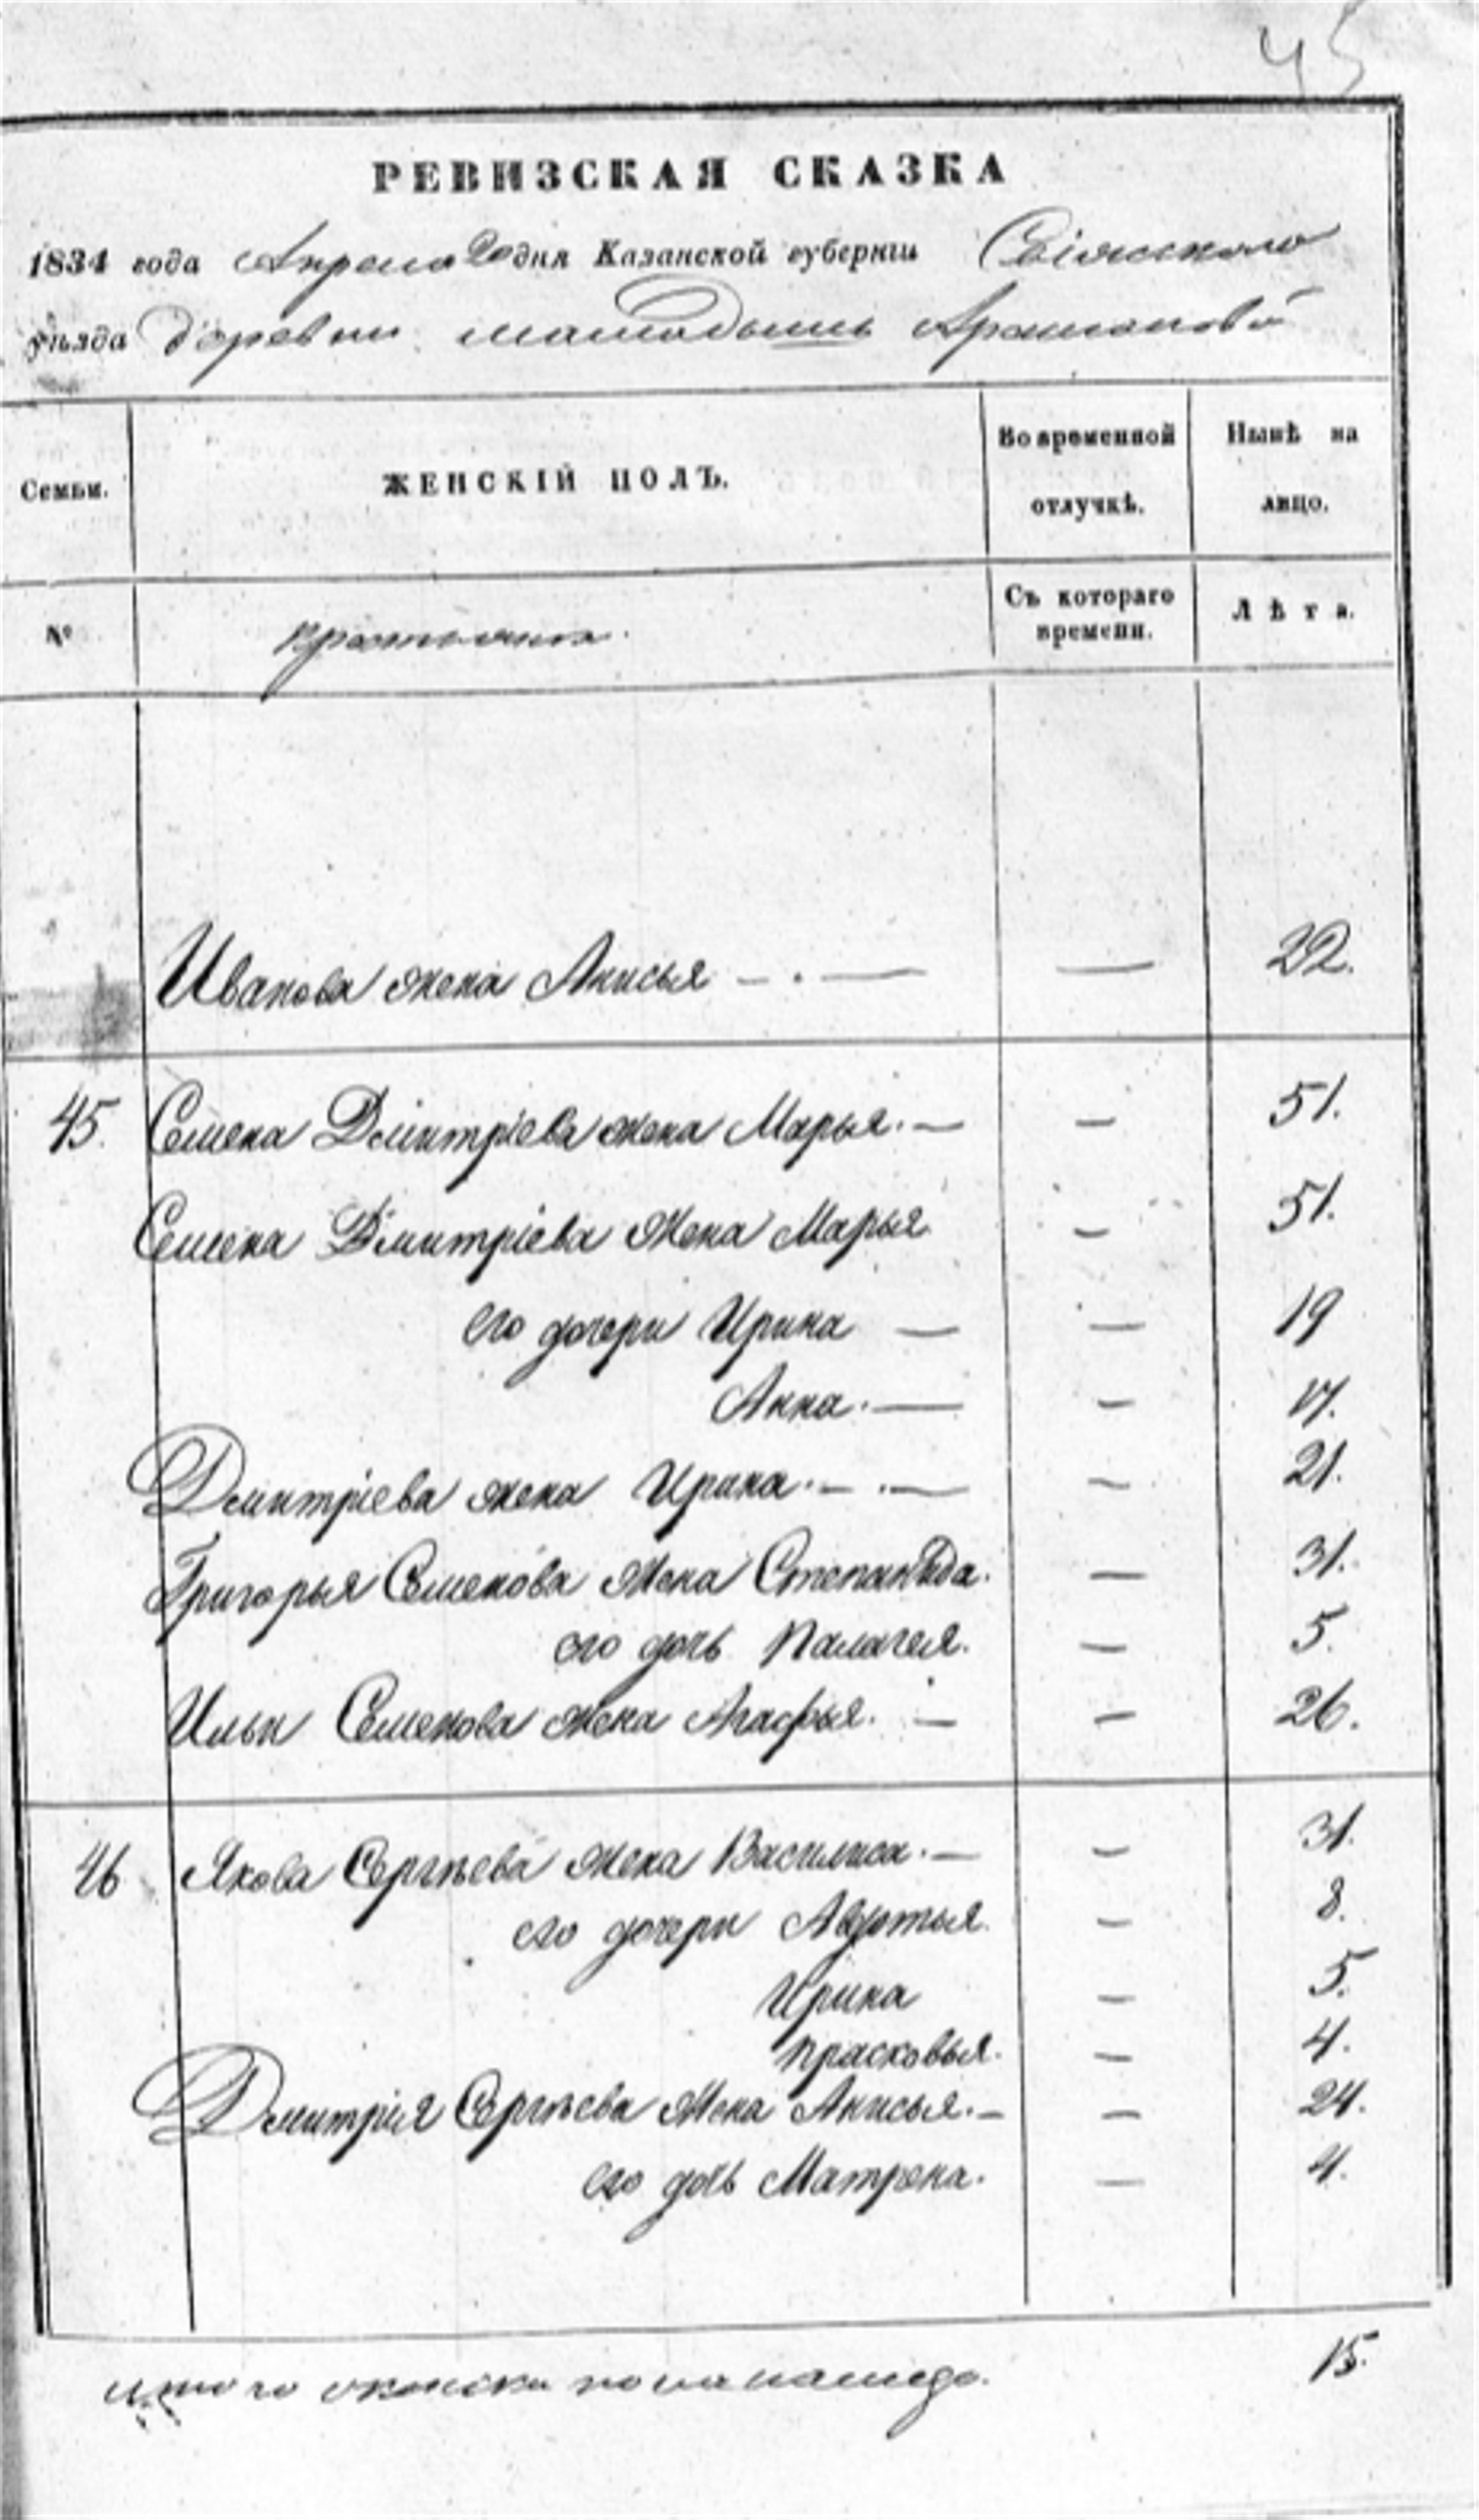 45
РЕВИЗСКАЯ СКАЗКА
1834 года Апреля 20 дня Казанской губерніи Свіяжскаго
уѣзда деревни
Семьи.
ЖЕНСКІЙ ПОЛЪ.
Во временной отлучкѣ.
Нынѣ на лицо.
№
крестьяне.
Съ котораго времени.
Лѣта.
Иванова жена Анисья — . — — 22.
45. Семена Дмитріева жена Марья. — — 51.
Семена Дмитріева жена Марья — 51.
его дочери Ирина — — 19
Анна. — — 17.
Дмитріева жена Ирина. — . — — 21.
Григорья Семенова жена Степанида. — 31.
его дочь Палагея. — 5.
Ильи Семенова жена Агафья. — — 26.
46 Якова Сергѣева жена Василиса. — — 31.
его дочери Авдотья. — 8.
Ирина — 5.
Прасковья. — 4.
Дмитрія Сергѣева жена Анисья. — — 24.
его дочь Матрена. — 4.
итого женска пола налицо. 15.